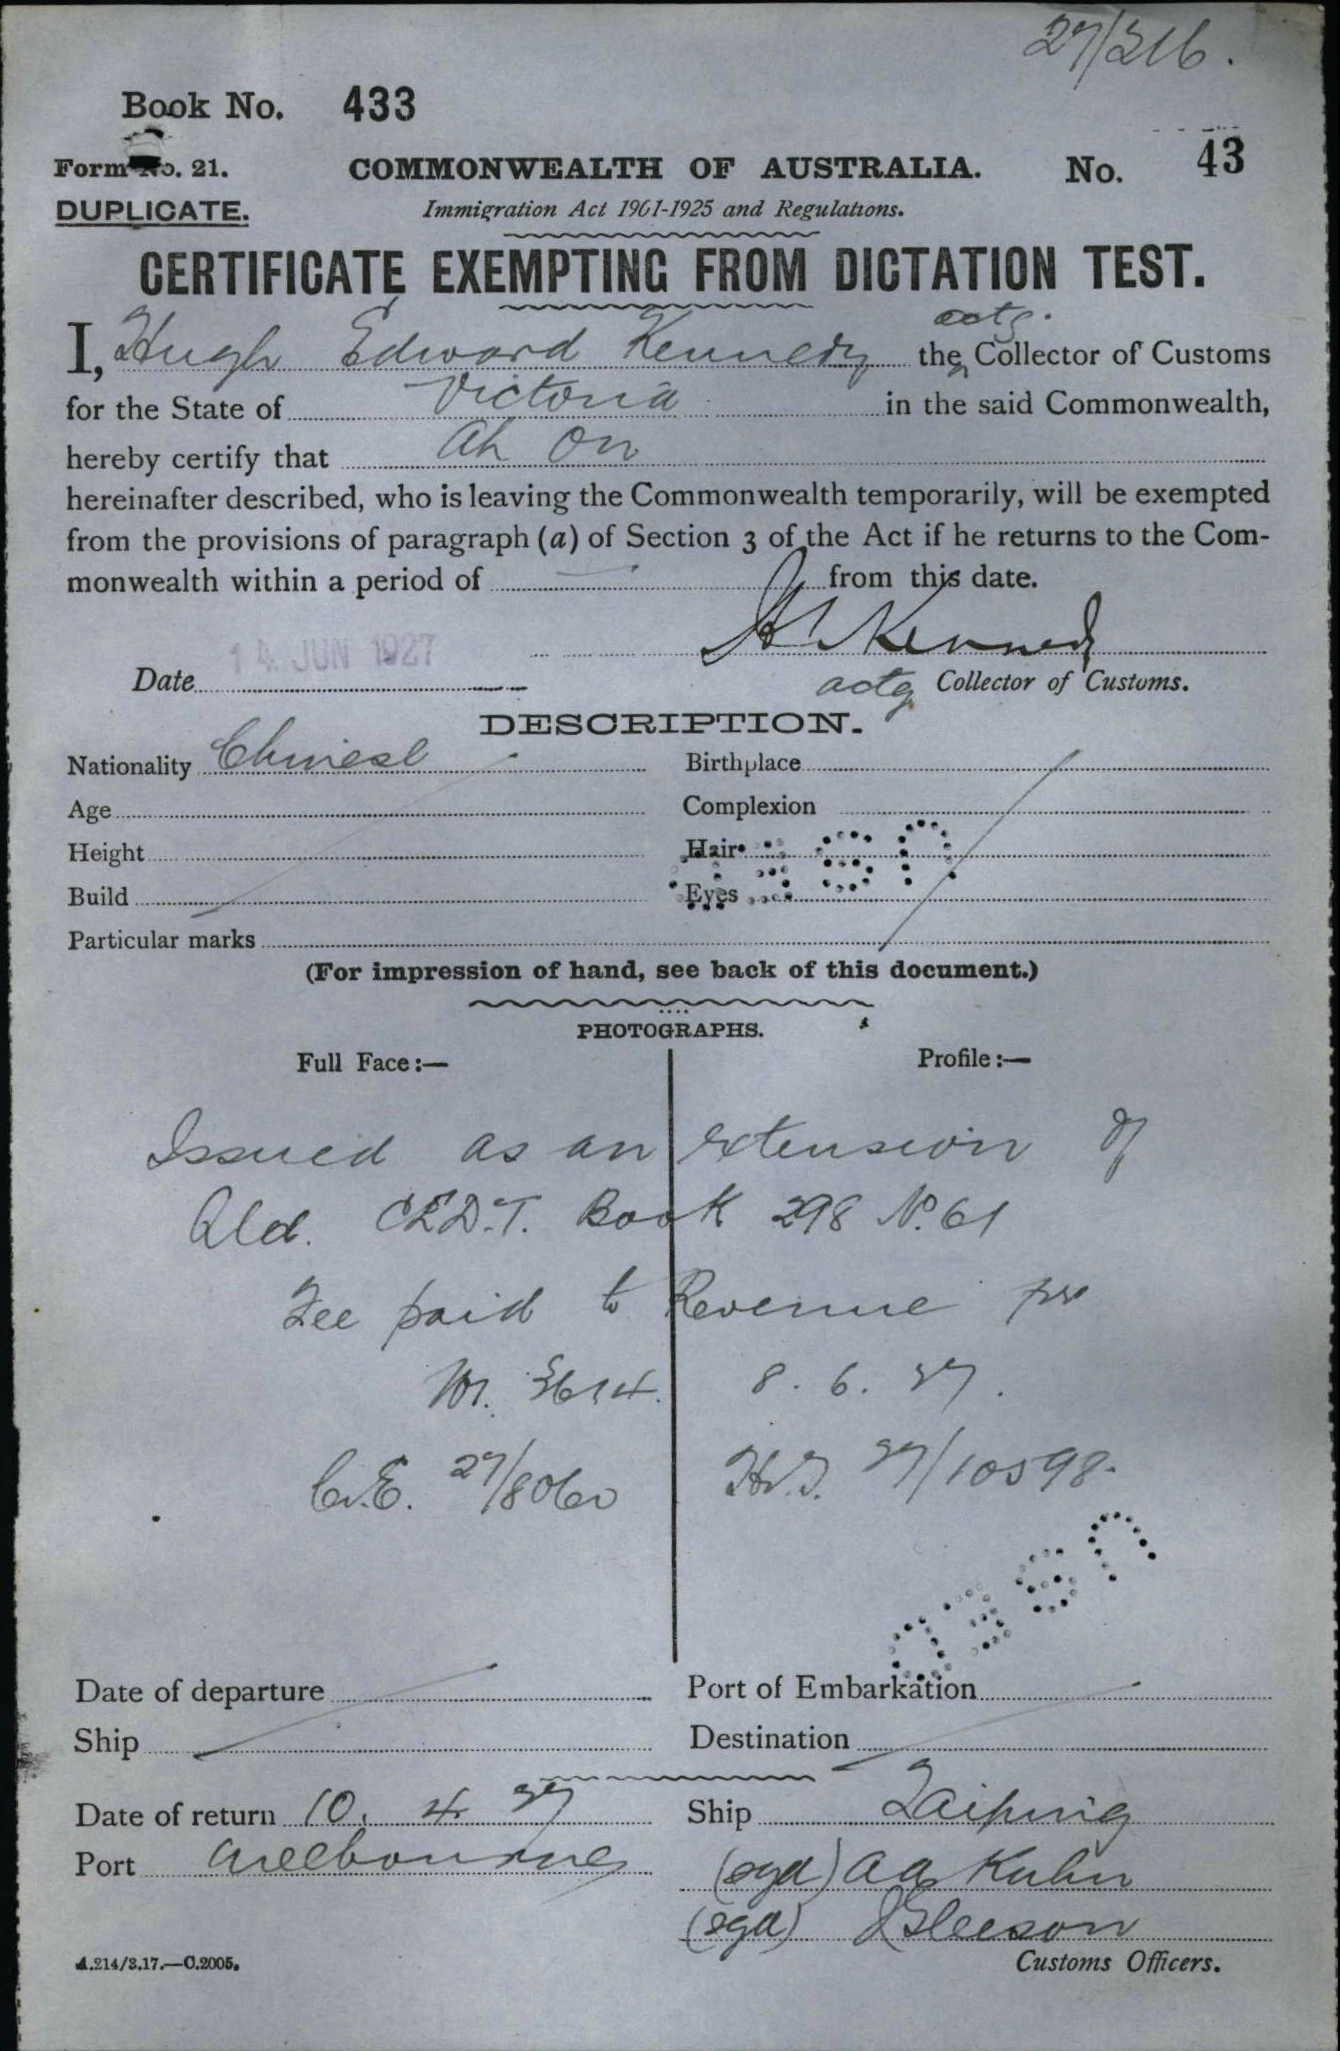 27/216.
Book No. 433
Form No. 21. COMMONWEALTH OF AUSTRALIA. No. 43
DUPLICATE. Immigration Act 1901-1925 and Regulations.
CERTIFICATE EXEMPTING FROM DICTATION TEST.
actg.
I, Hugh Edward Kennedy the Collector of Customs
for the State of Victoria in the said Commonwealth,
hereby certify that Ah On
hereinafter described, who is leaving the Commonwealth temporarily, will be exempted
from the provisions of paragraph (a) of Section 3 of the Act if he returns to the Com-
monwealth within a period of from this date.
14 JUN 1927 Kennedy
Date actg Collector of Customs.
DESCRIPTION.
Nationality Chinese Birthplace
Age Complexion
Height Hair
Build Eyes
Particular marks
(For impression of hand, see back of this document.)
PHOTOGRAPHS.
Full Face:— Profile:—
Issued as an extension of
Qld. C.E.D.T. Book 298 No. 61
Fee paid to Revenue
8. 6. 27.
C.E. 27/8060 H.T. 27/10598.
Date of departure Port of Embarkation
Ship Destination
Date of return 10. 4. 27 Ship Taiping
Port Melbourne (sgd) A A Kuhn
(sgd) J Gleeson
A.214/3.17.—C.2005. Customs Officers.